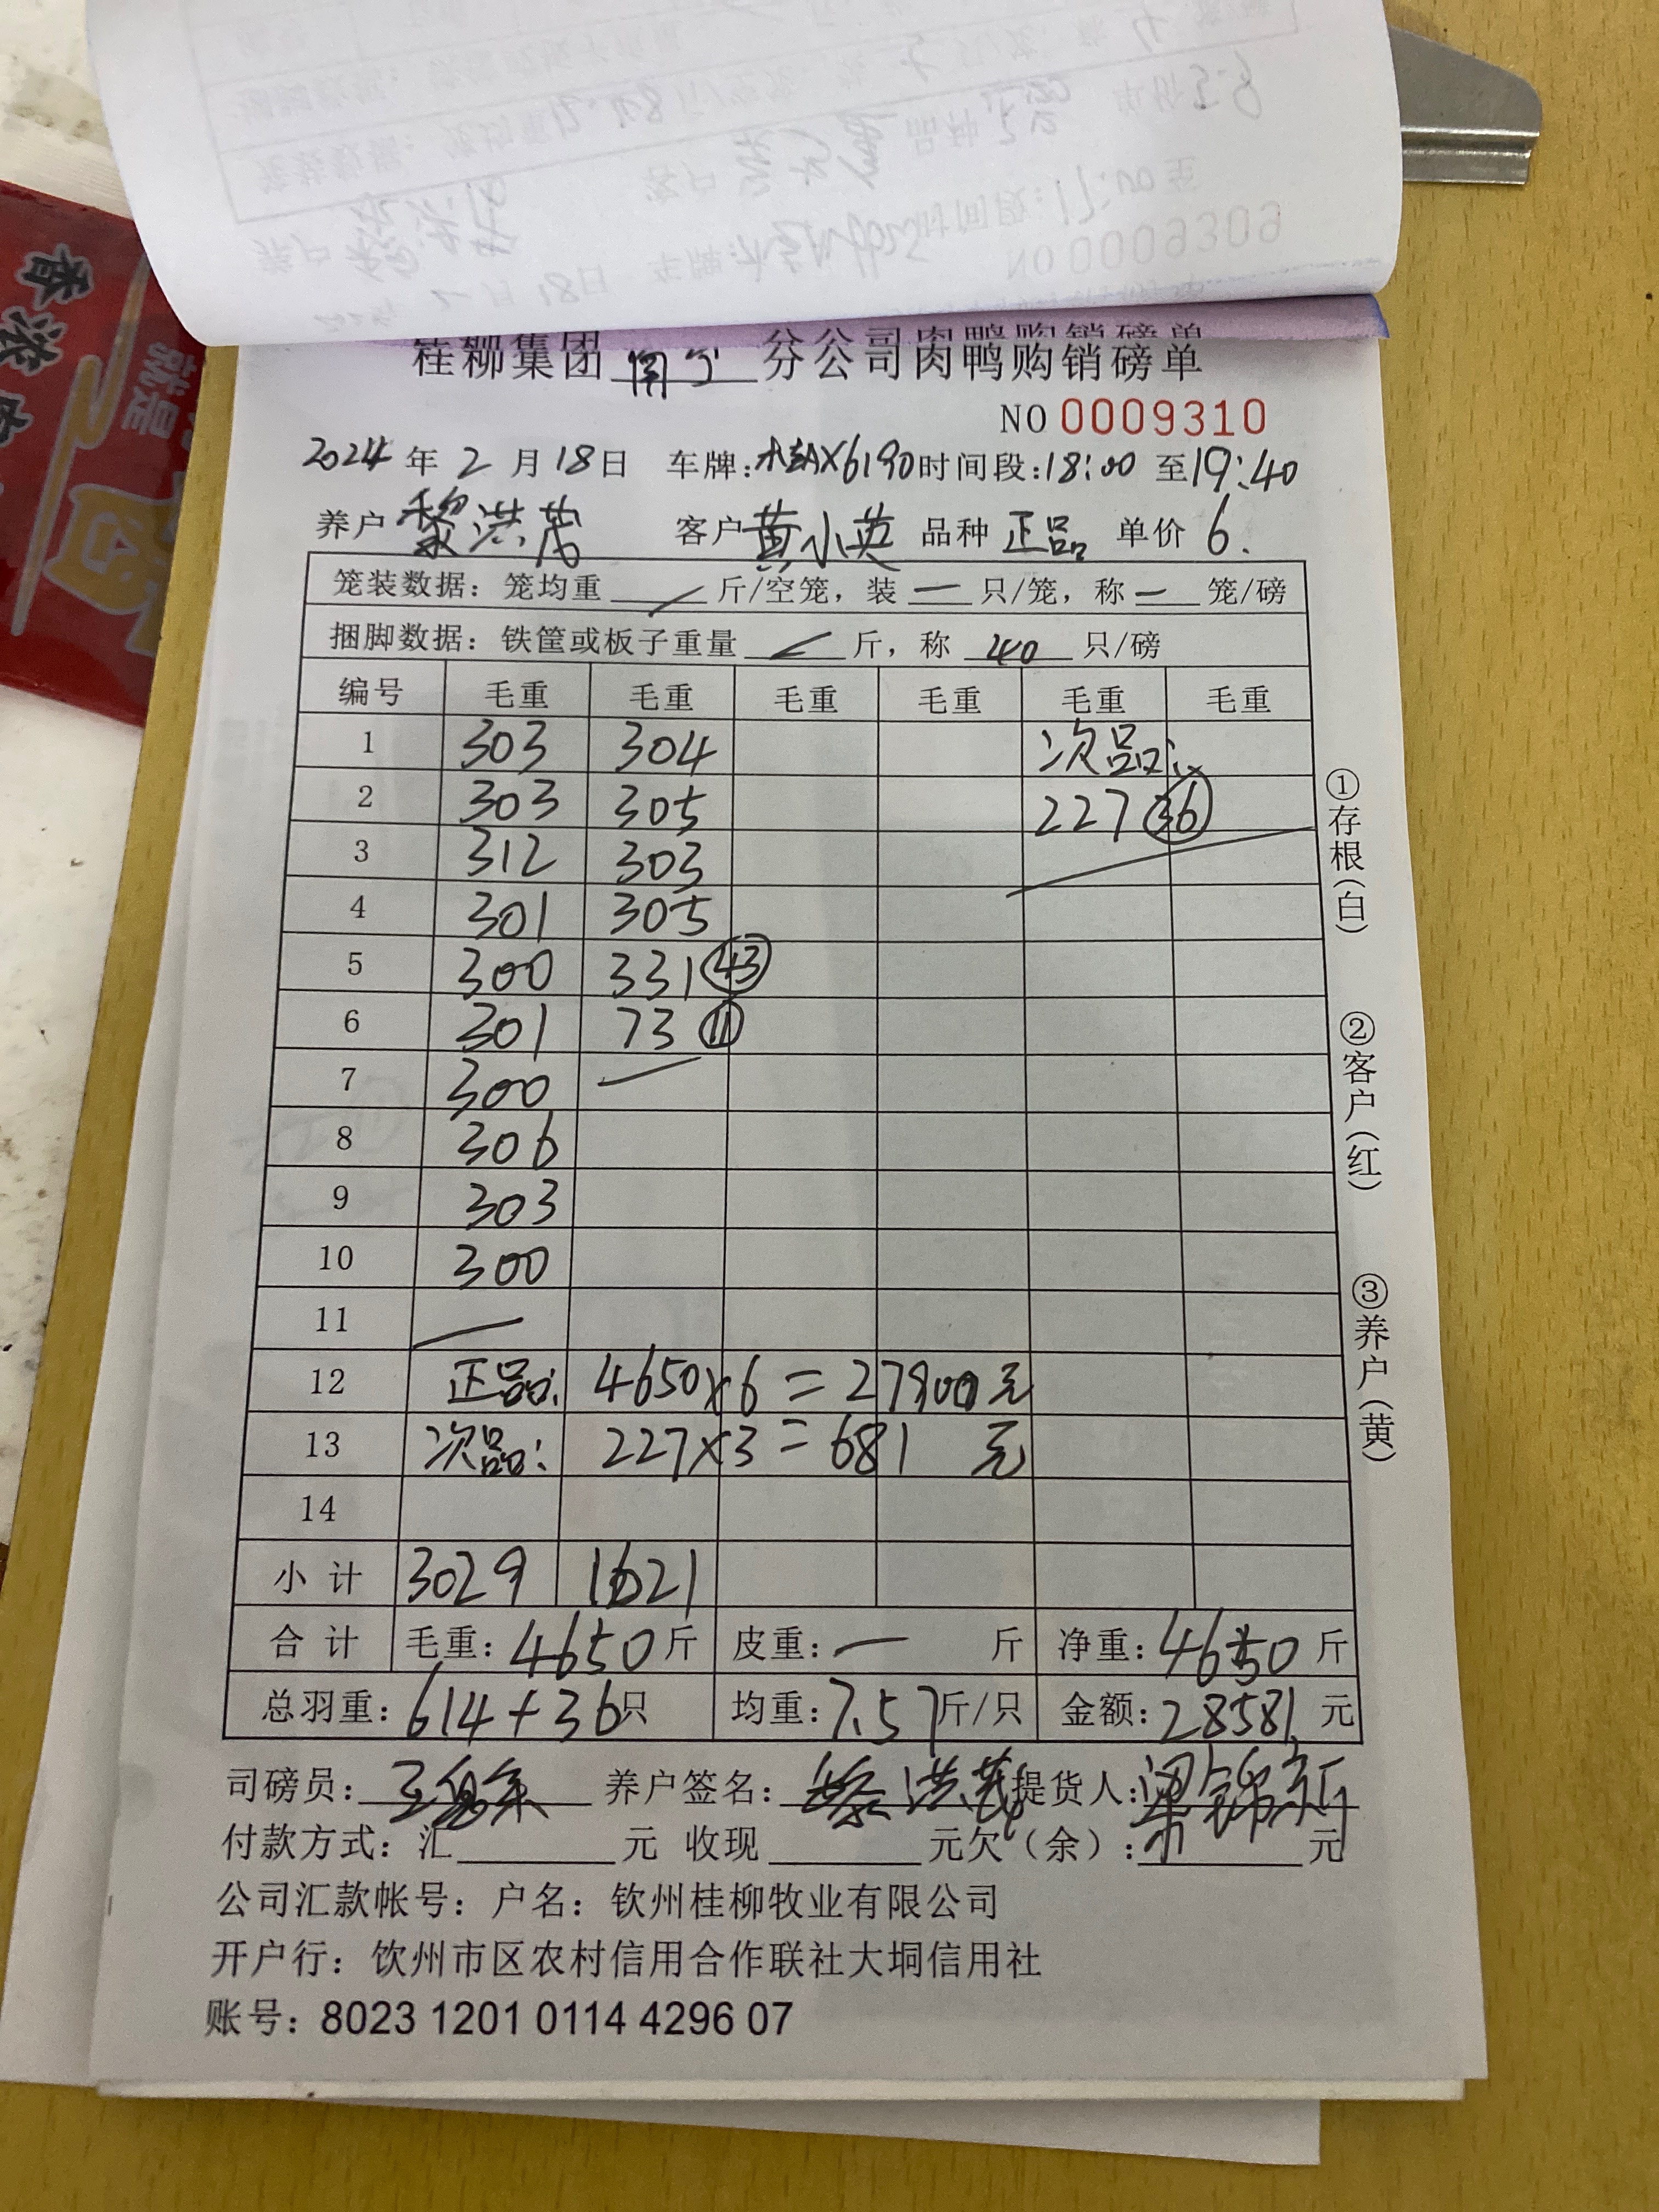 香浓
就是
NO 0009309
桂柳集团 南宁 分公司肉鸭购销磅单
NO 0009310
2024 年 2 月 18 日 车牌: 桂AX6190 时间段: 18:00 至 19:40
养户 黎洪茂 客户 黄小英 品种 正品 单价 6.
笼装数据: 笼均重 / 斤/空笼, 装 一 只/笼, 称 一 笼/磅
捆脚数据: 铁筐或板子重量 / 斤, 称 40 只/磅
编号 毛重 毛重 毛重 毛重 毛重 毛重
1 303 304 次品:
2 303 305 227 36
3 312 303
4 301 305
5 300 331 43
6 301 73 11
7 300
8 306
9 303
10 300
11
12 正品: 4650×6=27900元
13 次品: 227×3=681 元
14
小 计 3029 1621
合 计 毛重: 4650 斤 皮重: 一 斤 净重: 4650 斤
总羽重: 614+36只 均重: 7.57斤/只 金额: 28581 元
司磅员: 养户签名: 黎洪茂 提货人: 梁锦新
付款方式: 汇 元 收现 元欠(余): 元
公司汇款帐号: 户名: 钦州桂柳牧业有限公司
开户行: 饮州市区农村信用合作联社大垌信用社
账号: 8023 1201 0114 4296 07
①存根(白)
②客户(红)
③养户(黄)